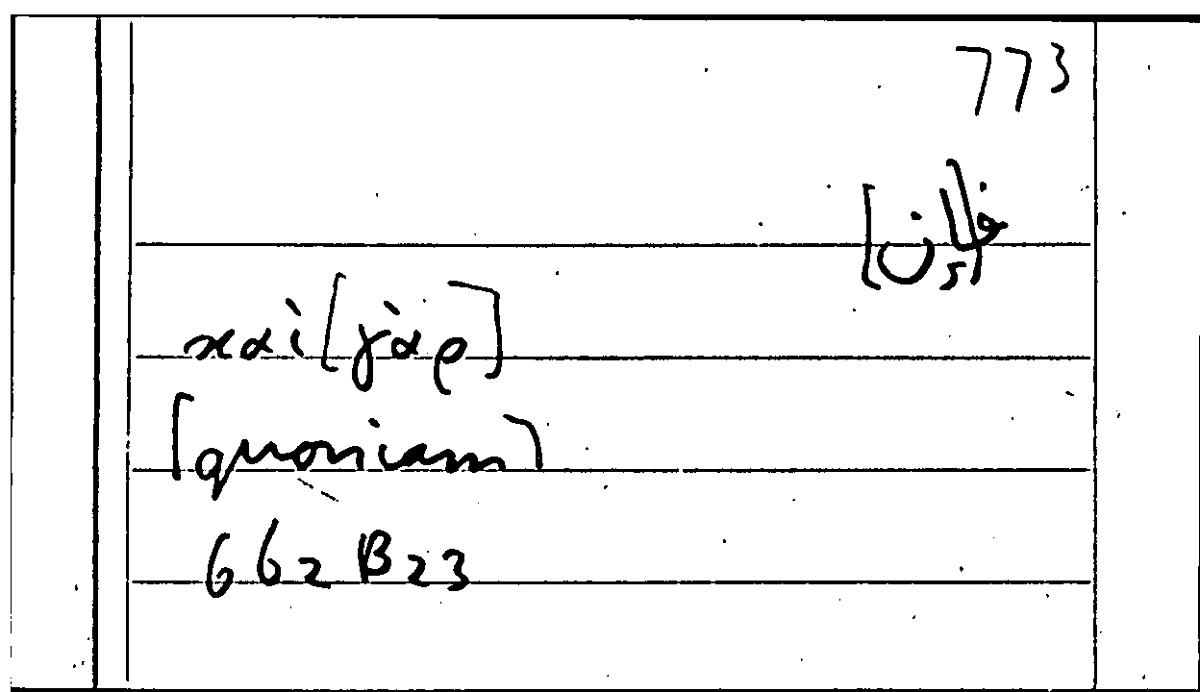 773
ف[إن]
καὶ [γὰρ]
[quoniam]
662 B 23